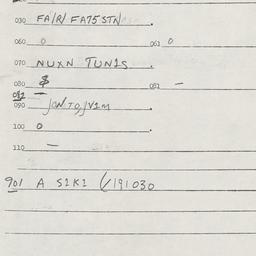 030 FA/R/ FA75STN .
060 0 061 0
070 NUXN TUNIS .
080 $ 081 –
082 –
090 JONTO, JVIM
100 0 .
110 –
901 A S1K1 (/191030